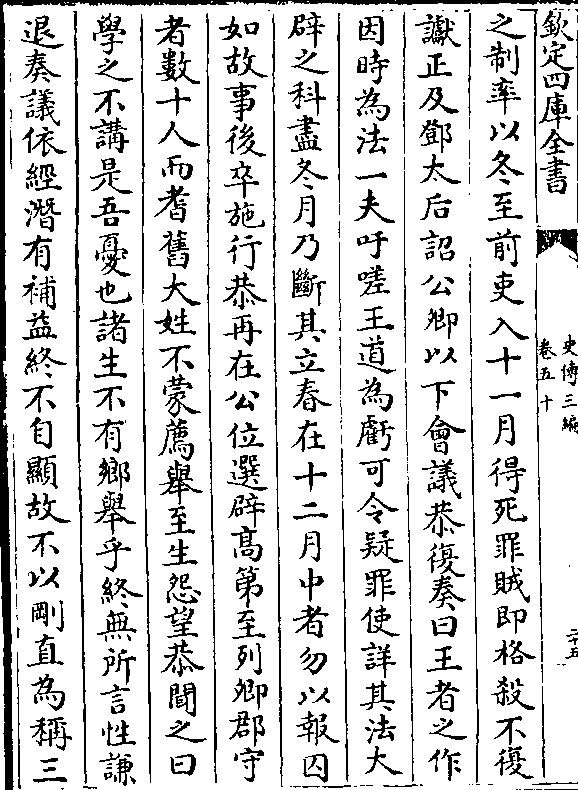 欽定四庫全書
史傳三編
卷五十
二十五
之制率以冬至前吏入十一月得死罪賊即格殺不復
讞正及鄧太后詔公卿以下會議恭復奏曰王者之作
因時為法一夫吁嗟王道為虧可令疑罪使詳其法大
辟之科盡冬月乃斷其立春在十二月中者勿以報囚
如故事後卒施行恭再在公位選辟高第至列卿郡守
者數十人而耆舊大姓不蒙薦舉至生怨望恭聞之曰
學之不講是吾憂也諸生不有鄉舉乎終無所言性謙
退奏議依經潛有補益終不自顯故不以剛直為稱三